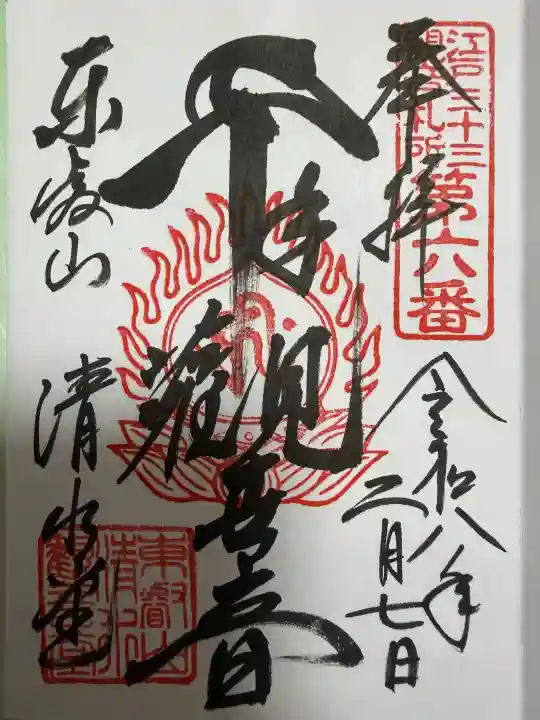 奉拝
江戸三十三
観音札所第六番
令和八年
二月七日
千手觀世音
東叡山
清水堂
東叡山
清水
観音堂